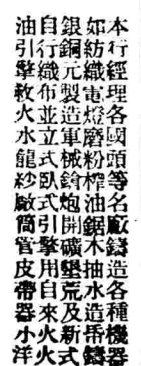 本行經理各國頭等名廠鑄造各種機器
如紡織電燈磨粉榨油鋸木抽水造帋鑄
銀銅元製造軍械鎗炮開礦墾荒及新式
自行織布並立式臥式引擎用自來火火
油引擎救火水龍紗廠筒管皮帶器小洋